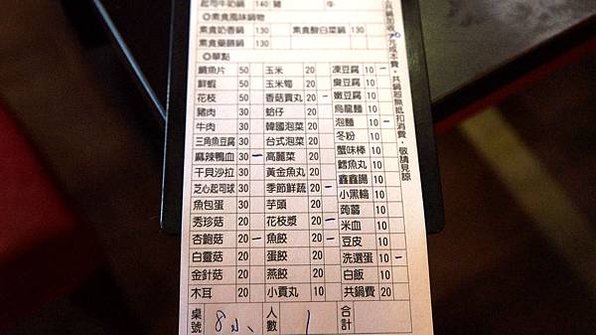 起司牛奶鍋 140 豬 牛
◎素食風味鍋物
素食奶香鍋 130 素食酸白菜鍋 130
素食藥膳鍋 130
◎單點
鯛魚片 50 玉米 20 凍豆腐 10 –
鮮蝦 50 玉米筍 20 臭豆腐 10
花枝 50 香菇貢丸 20 – 嫩豆腐 10
豬肉 30 蛤仔 20 烏龍麵 10
牛肉 30 韓國泡菜 20 泡麵 10 –
三角魚豆腐 30 台式泡菜 20 冬粉 10
麻辣鴨血 30 – 高麗菜 20 蟹味棒 10
干貝沙拉 30 黃金魚丸 20 鱈魚丸 10
芝心起司球 30 季節鮮蔬 20 – 鑫鑫腸 10
魚包蛋 30 芋頭 20 小黑輪 10
秀珍菇 20 花枝漿 20 – 蒟蒻 10
杏鮑菇 20 – 魚餃 20 – 米血 10
白靈菇 20 蛋餃 20 豆皮 10
金針菇 20 燕餃 20 洗選蛋 10 –
木耳 20 小貢丸 10 白飯 10
共鍋費 20
桌號 人數 1 合計
元成本費,共鍋恕無抵扣消費,敬請見諒